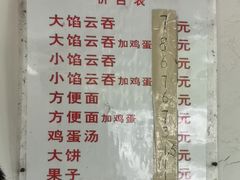 价目表
大馅云吞 7元
大馅云吞加鸡蛋 8元
小馅云吞 6元
小馅云吞加鸡蛋 7元
方便面 6元
方便面加鸡蛋 7元
鸡蛋汤 元
大饼 元
果子